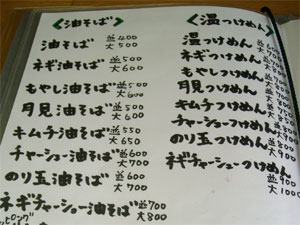 ＜油そば＞
油そば 並400 大500
ネギ油そば 並500 大600
もやし油そば 並500 大600
月見油そば 並500 大600
キムチ油そば 並550 大650
チャーシュー油そば 並600 大700
のり玉油そば 並600 大700
ネギチャーシュー油そば 並700 大800
＜温つけめん＞
温つけめん
ネギつけめん
もやしつけめん
月見つけめん
キムチつけめん
チャーシューつけめん
のり玉つけめん 大900
ネギチャーシューつけめん 並900 大1000